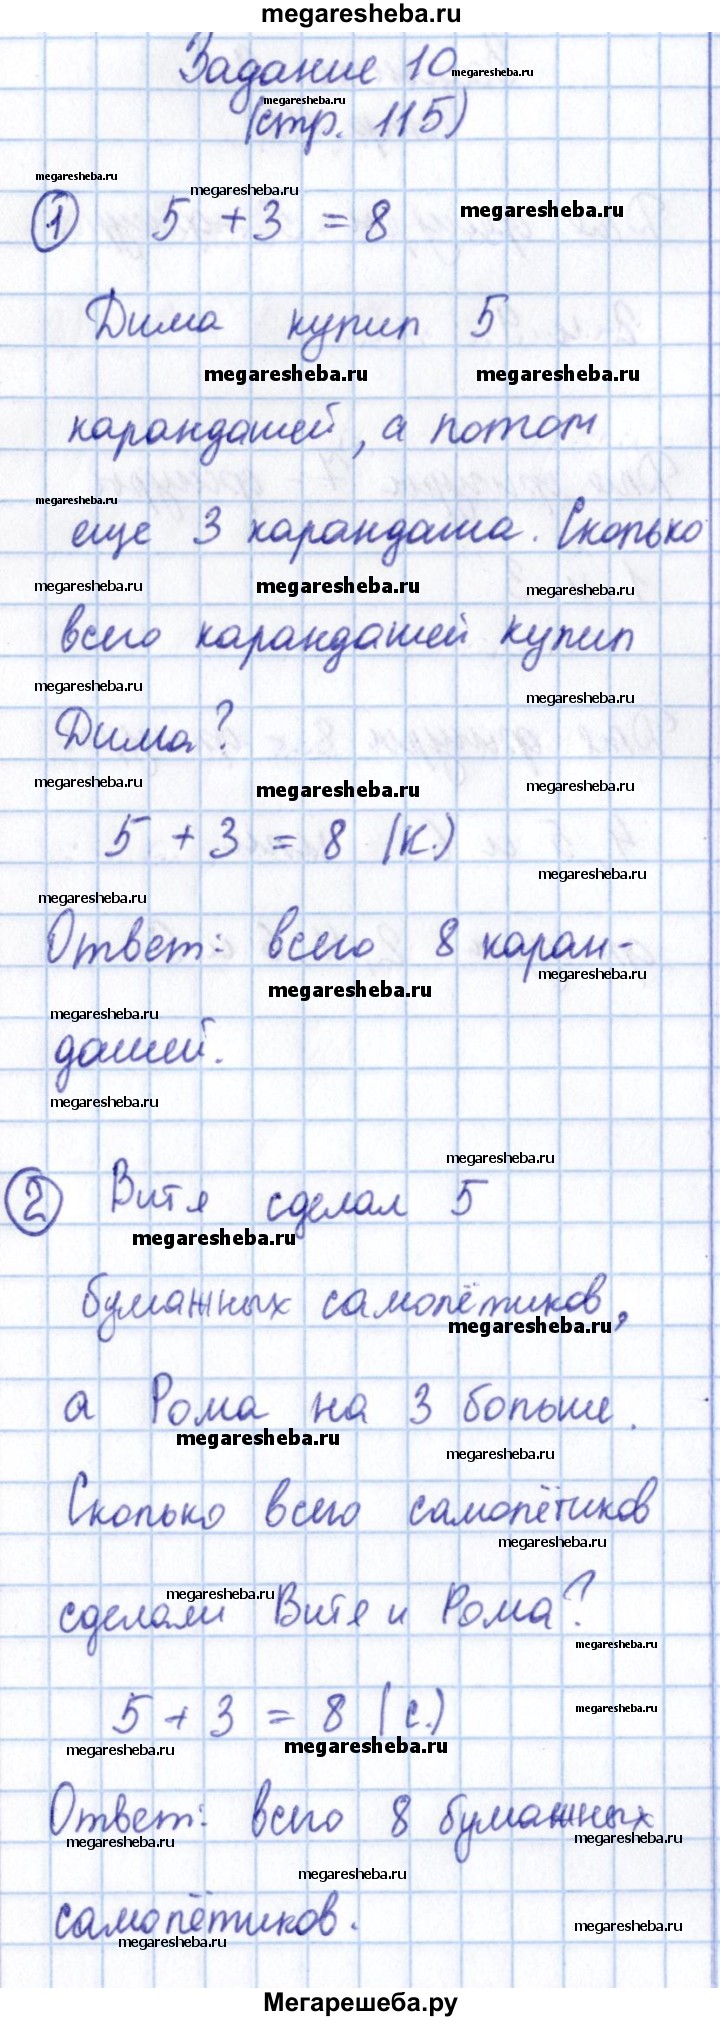 megaresheba.ru
Задание 10
megaresheba.ru
megaresheba.ru
(стр. 115)
megaresheba.ru
megaresheba.ru
1 5 + 3 = 8
megaresheba.ru
Дима купил 5
megaresheba.ru megaresheba.ru
карандашей, а потом
megaresheba.ru
еще 3 карандаша. Сколько
megaresheba.ru megaresheba.ru megaresheba.ru
всего карандашей купил
megaresheba.ru megaresheba.ru
Дима?
megaresheba.ru megaresheba.ru megaresheba.ru
5 + 3 = 8 (к.)
megaresheba.ru megaresheba.ru
Ответ: всего 8 каран-
megaresheba.ru megaresheba.ru
megaresheba.ru
дашей.
megaresheba.ru
megaresheba.ru
2 Витя сделал 5
megaresheba.ru
бумажных самолётиков,
megaresheba.ru
а Рома на 3 больше.
megaresheba.ru megaresheba.ru
Сколько всего самолётиков
megaresheba.ru
megaresheba.ru
сделали Витя и Рома?
megaresheba.ru
5 + 3 = 8 (с.)
megaresheba.ru
megaresheba.ru megaresheba.ru
Ответ: всего 8 бумажных
megaresheba.ru megaresheba.ru
megaresheba.ru
самолётиков.
megaresheba.ru megaresheba.ru
Мегарешеба.ру